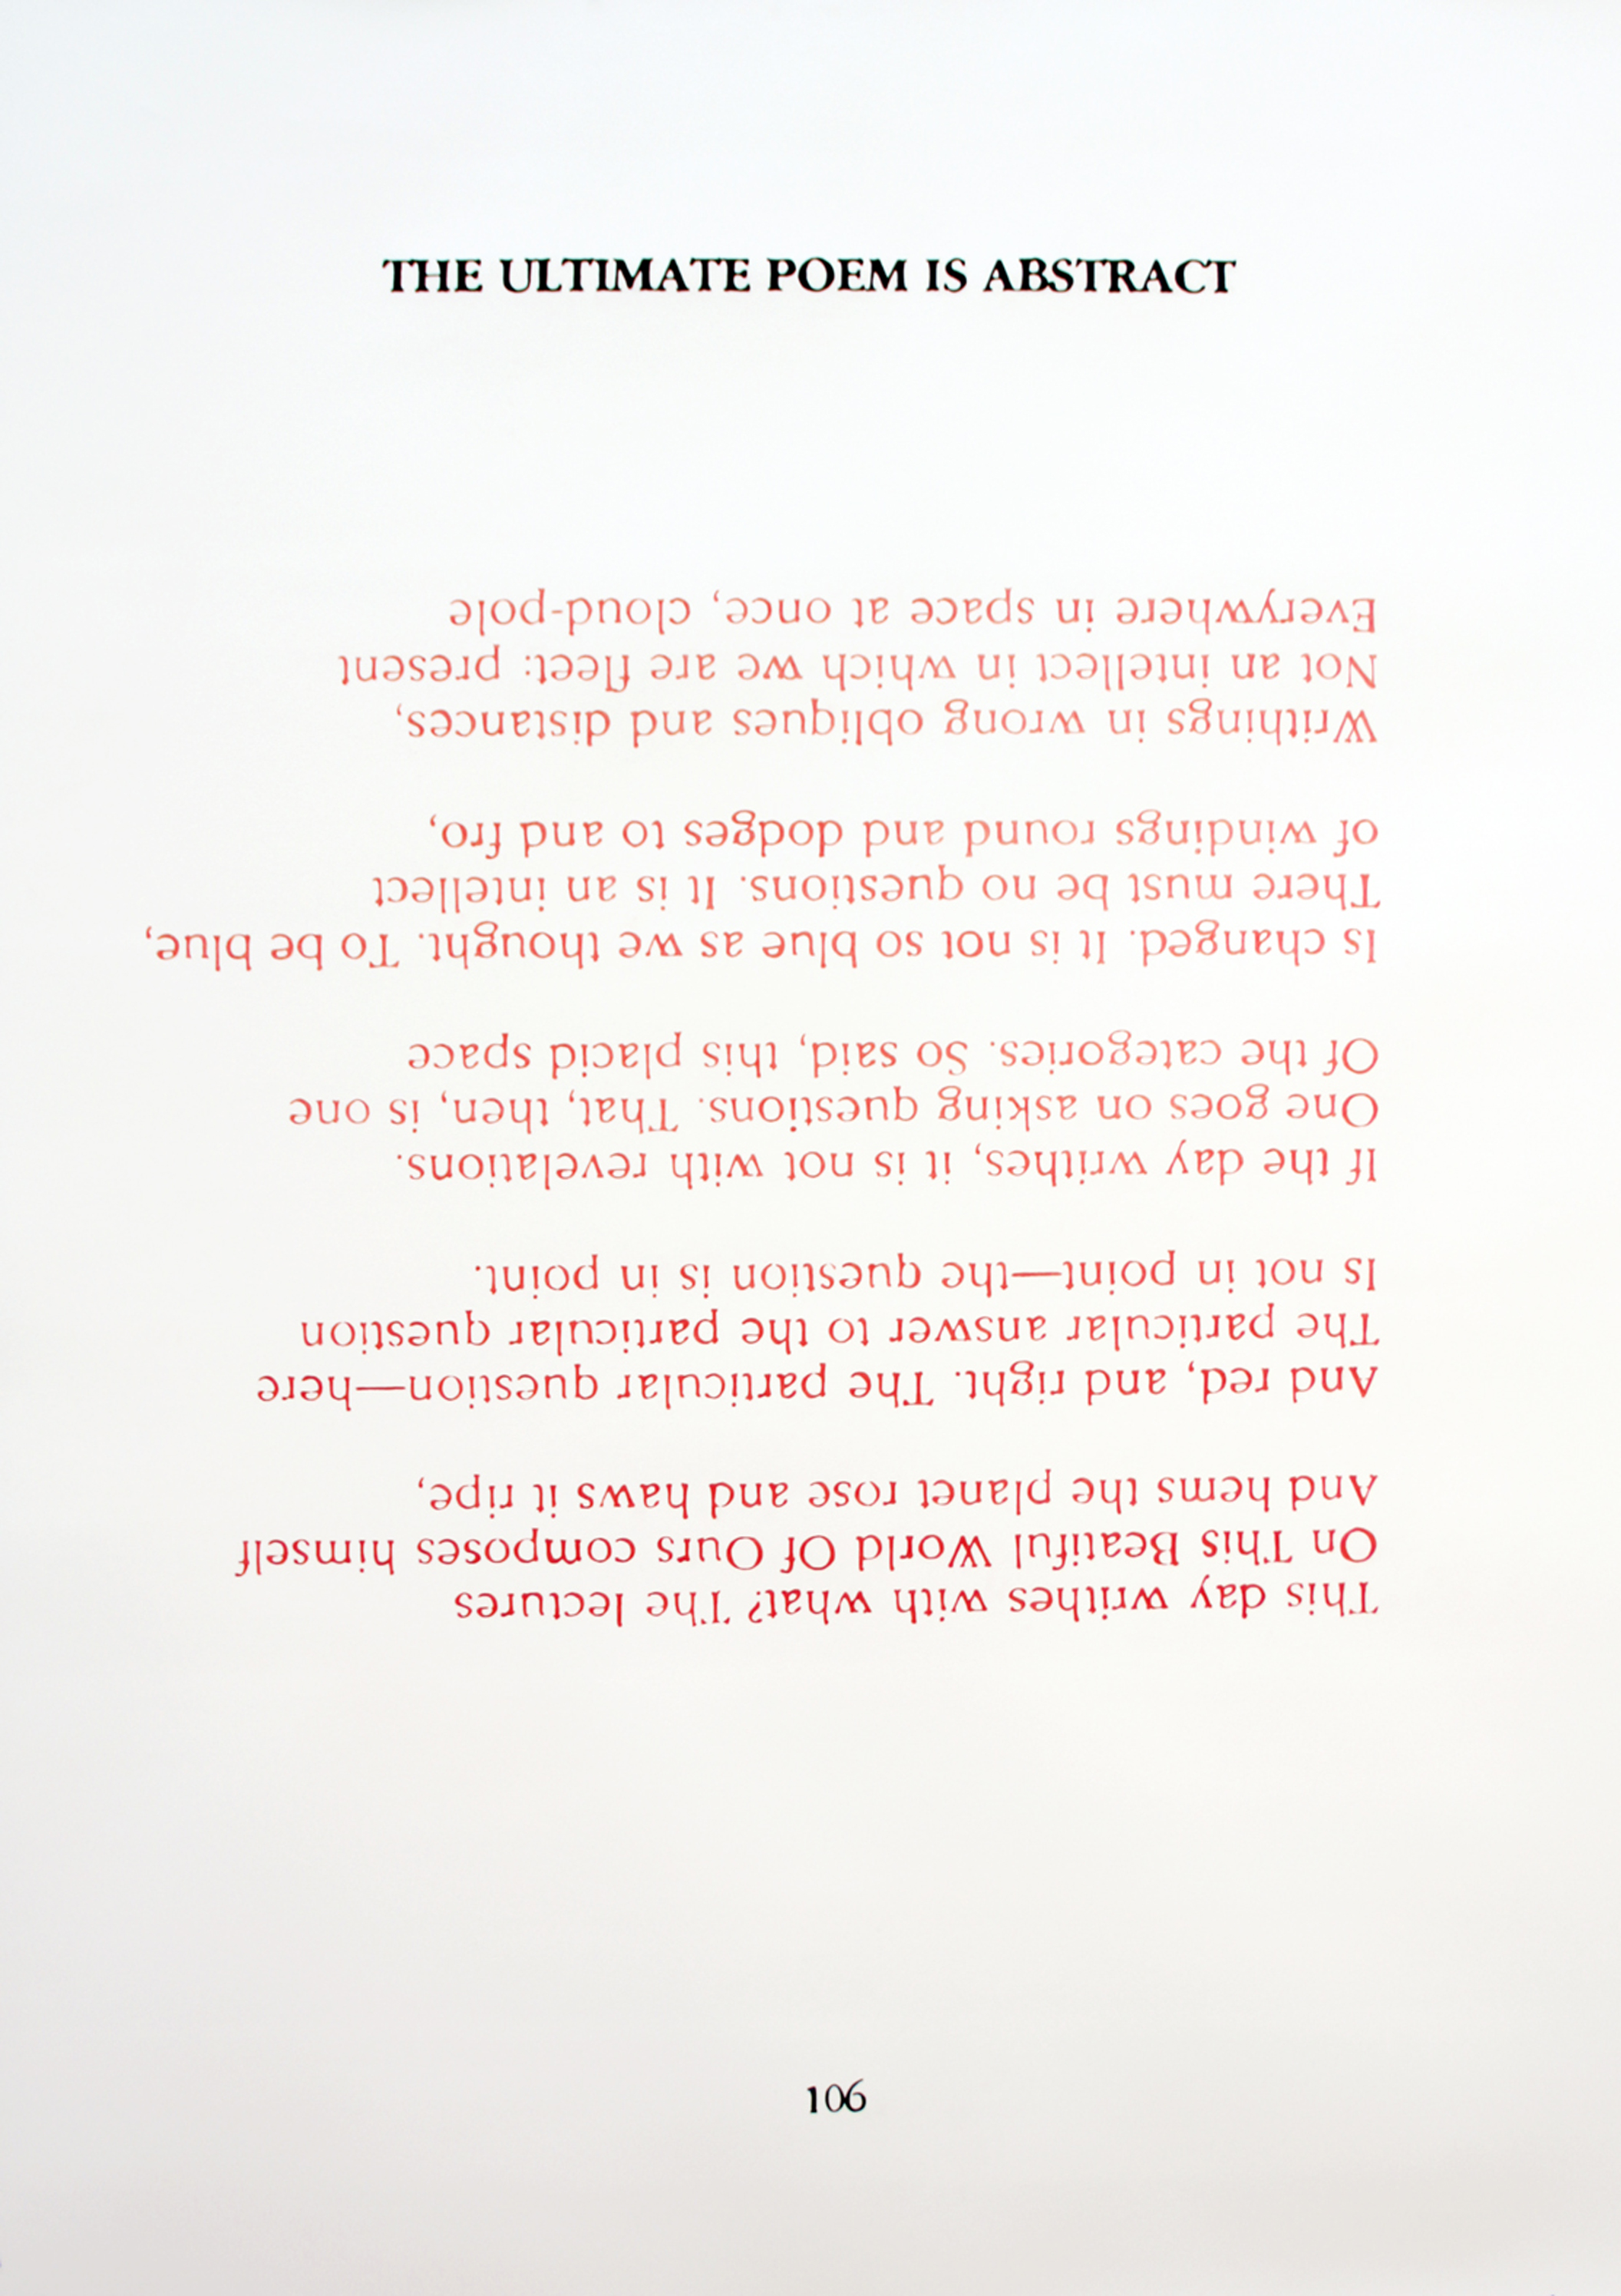 THE ULTIMATE POEM IS ABSTRACT
This day writhes with what? The lectures
On This Beatiful World Of Ours composes himself
And hems the planet rose and haws it ripe,
And red, and right. The particular question—here
The particular answer to the particular question
Is not in point—the question is in point.
If the day writhes, it is not with revelations.
One goes on asking questions. That, then, is one
Of the categories. So said, this placid space
Is changed. It is not so blue as we thought. To be blue,
There must be no questions. It is an intellect
of windings round and dodges to and fro,
Writhings in wrong obliques and distances,
Not an intellect in which we are fleet: present
Everywhere in space at once, cloud-pole
106